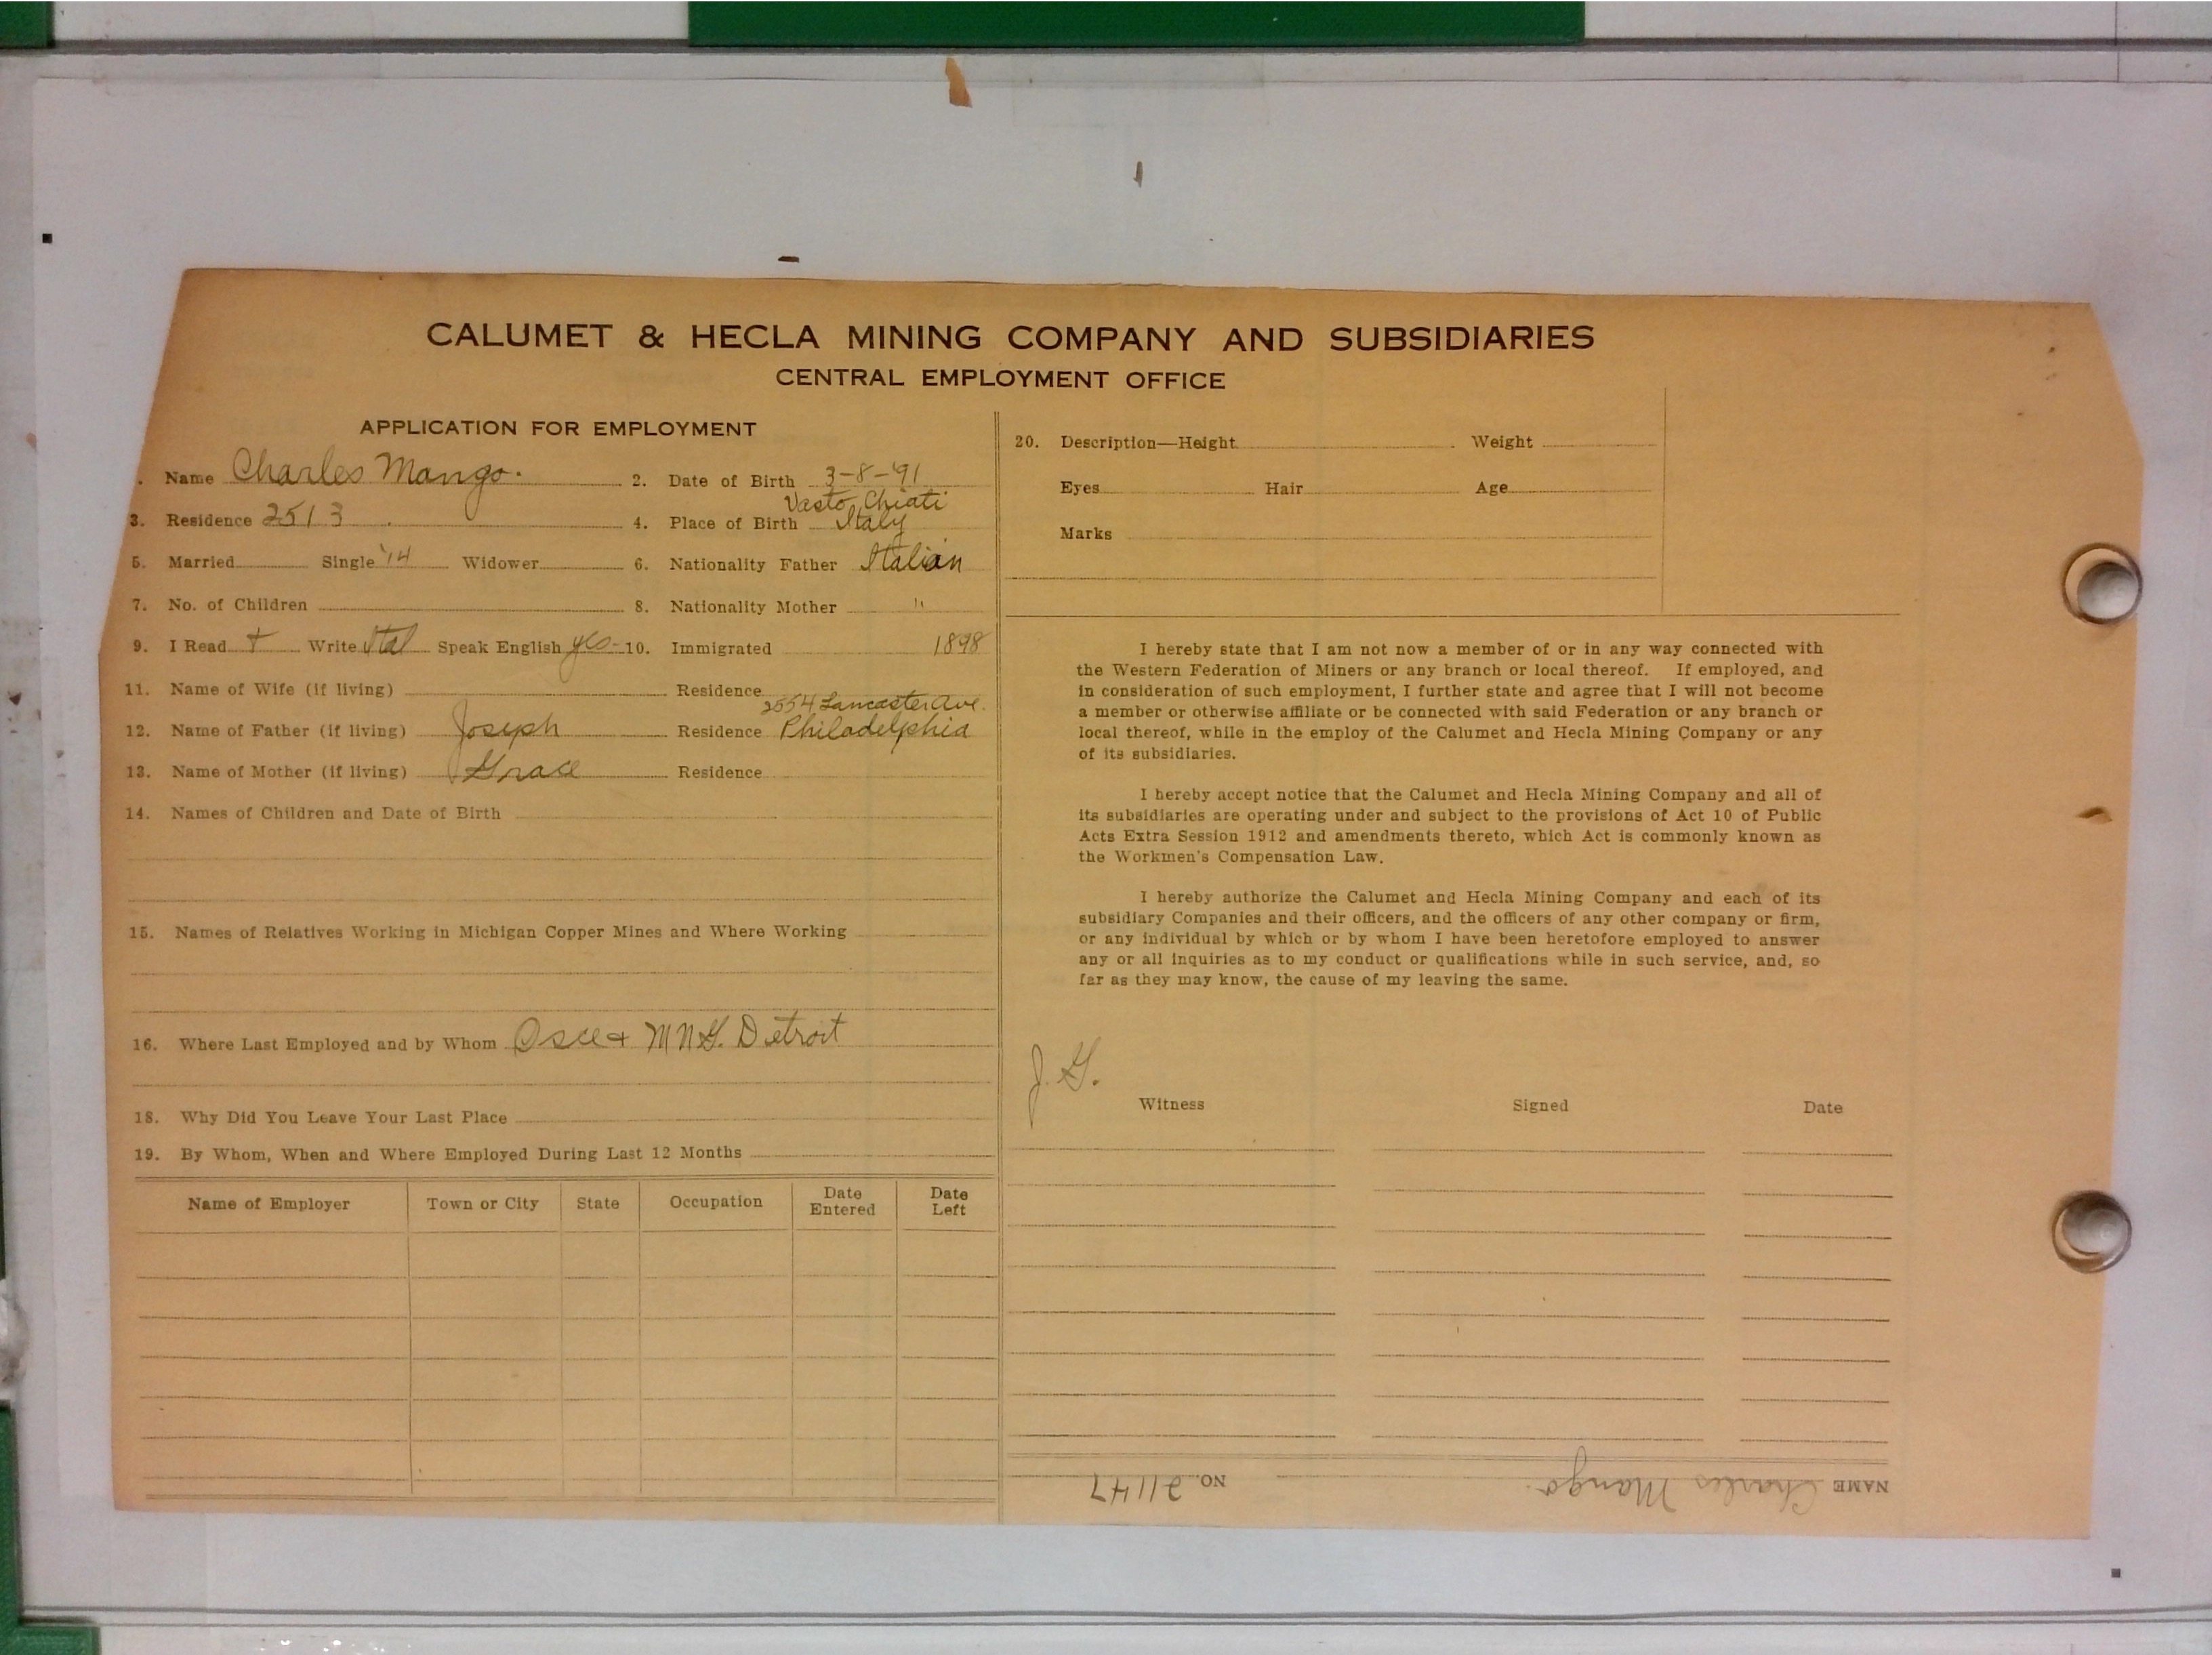 CALUMET & HECLA MINING COMPANY AND SUBSIDIARIES
CENTRAL EMPLOYMENT OFFICE
APPLICATION FOR EMPLOYMENT
. Name Charles Mango. 2. Date of Birth 3-8-'91
Vasto, Chiati
3. Residence 2513 4. Place of Birth Italy
5. Married Single '14 Widower 6. Nationality Father Italian
7. No. of Children 8. Nationality Mother "
9. I Read + Write Ital Speak English yes- 10. Immigrated 1898
11. Name of Wife (if living) Residence
2554 Lancaster Ave.
12. Name of Father (if living) Joseph Residence Philadelphia
13. Name of Mother (if living) Grace Residence
14. Names of Children and Date of Birth
15. Names of Relatives Working in Michigan Copper Mines and Where Working
16. Where Last Employed and by Whom Osce + M N G. Detroit
18. Why Did You Leave Your Last Place
19. By Whom, When and Where Employed During Last 12 Months
Name of Employer Town or City State Occupation Date Entered Date Left
20. Description—Height Weight
Eyes Hair Age
Marks
I hereby state that I am not now a member of or in any way connected with
the Western Federation of Miners or any branch or local thereof. If employed, and
in consideration of such employment, I further state and agree that I will not become
a member or otherwise affiliate or be connected with said Federation or any branch or
local thereof, while in the employ of the Calumet and Hecla Mining Company or any
of its subsidiaries.
I hereby accept notice that the Calumet and Hecla Mining Company and all of
its subsidiaries are operating under and subject to the provisions of Act 10 of Public
Acts Extra Session 1912 and amendments thereto, which Act is commonly known as
the Workmen's Compensation Law.
I hereby authorize the Calumet and Hecla Mining Company and each of its
subsidiary Companies and their officers, and the officers of any other company or firm,
or any individual by which or by whom I have been heretofore employed to answer
any or all inquiries as to my conduct or qualifications while in such service, and, so
far as they may know, the cause of my leaving the same.
J. G.
Witness Signed Date
NAME Charles Mango. NO. 21147